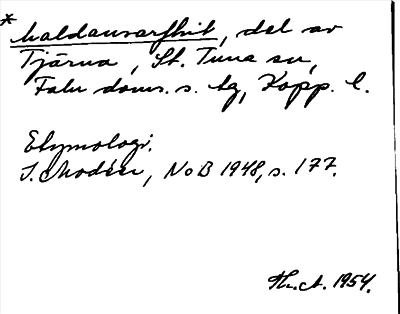 * haldansarfhit, del av
Tjärna, St. Tuna sn,
Falu doms. s. tg, Kopp. l.
Etymologi.
I. Modéer, NoB 1948, s. 177.
1954.